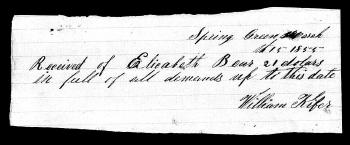 Spring Green, March
th 15 1855
Received of Elizabeth Bear 21 dolars
in full of all demands up to this date
William Kifer